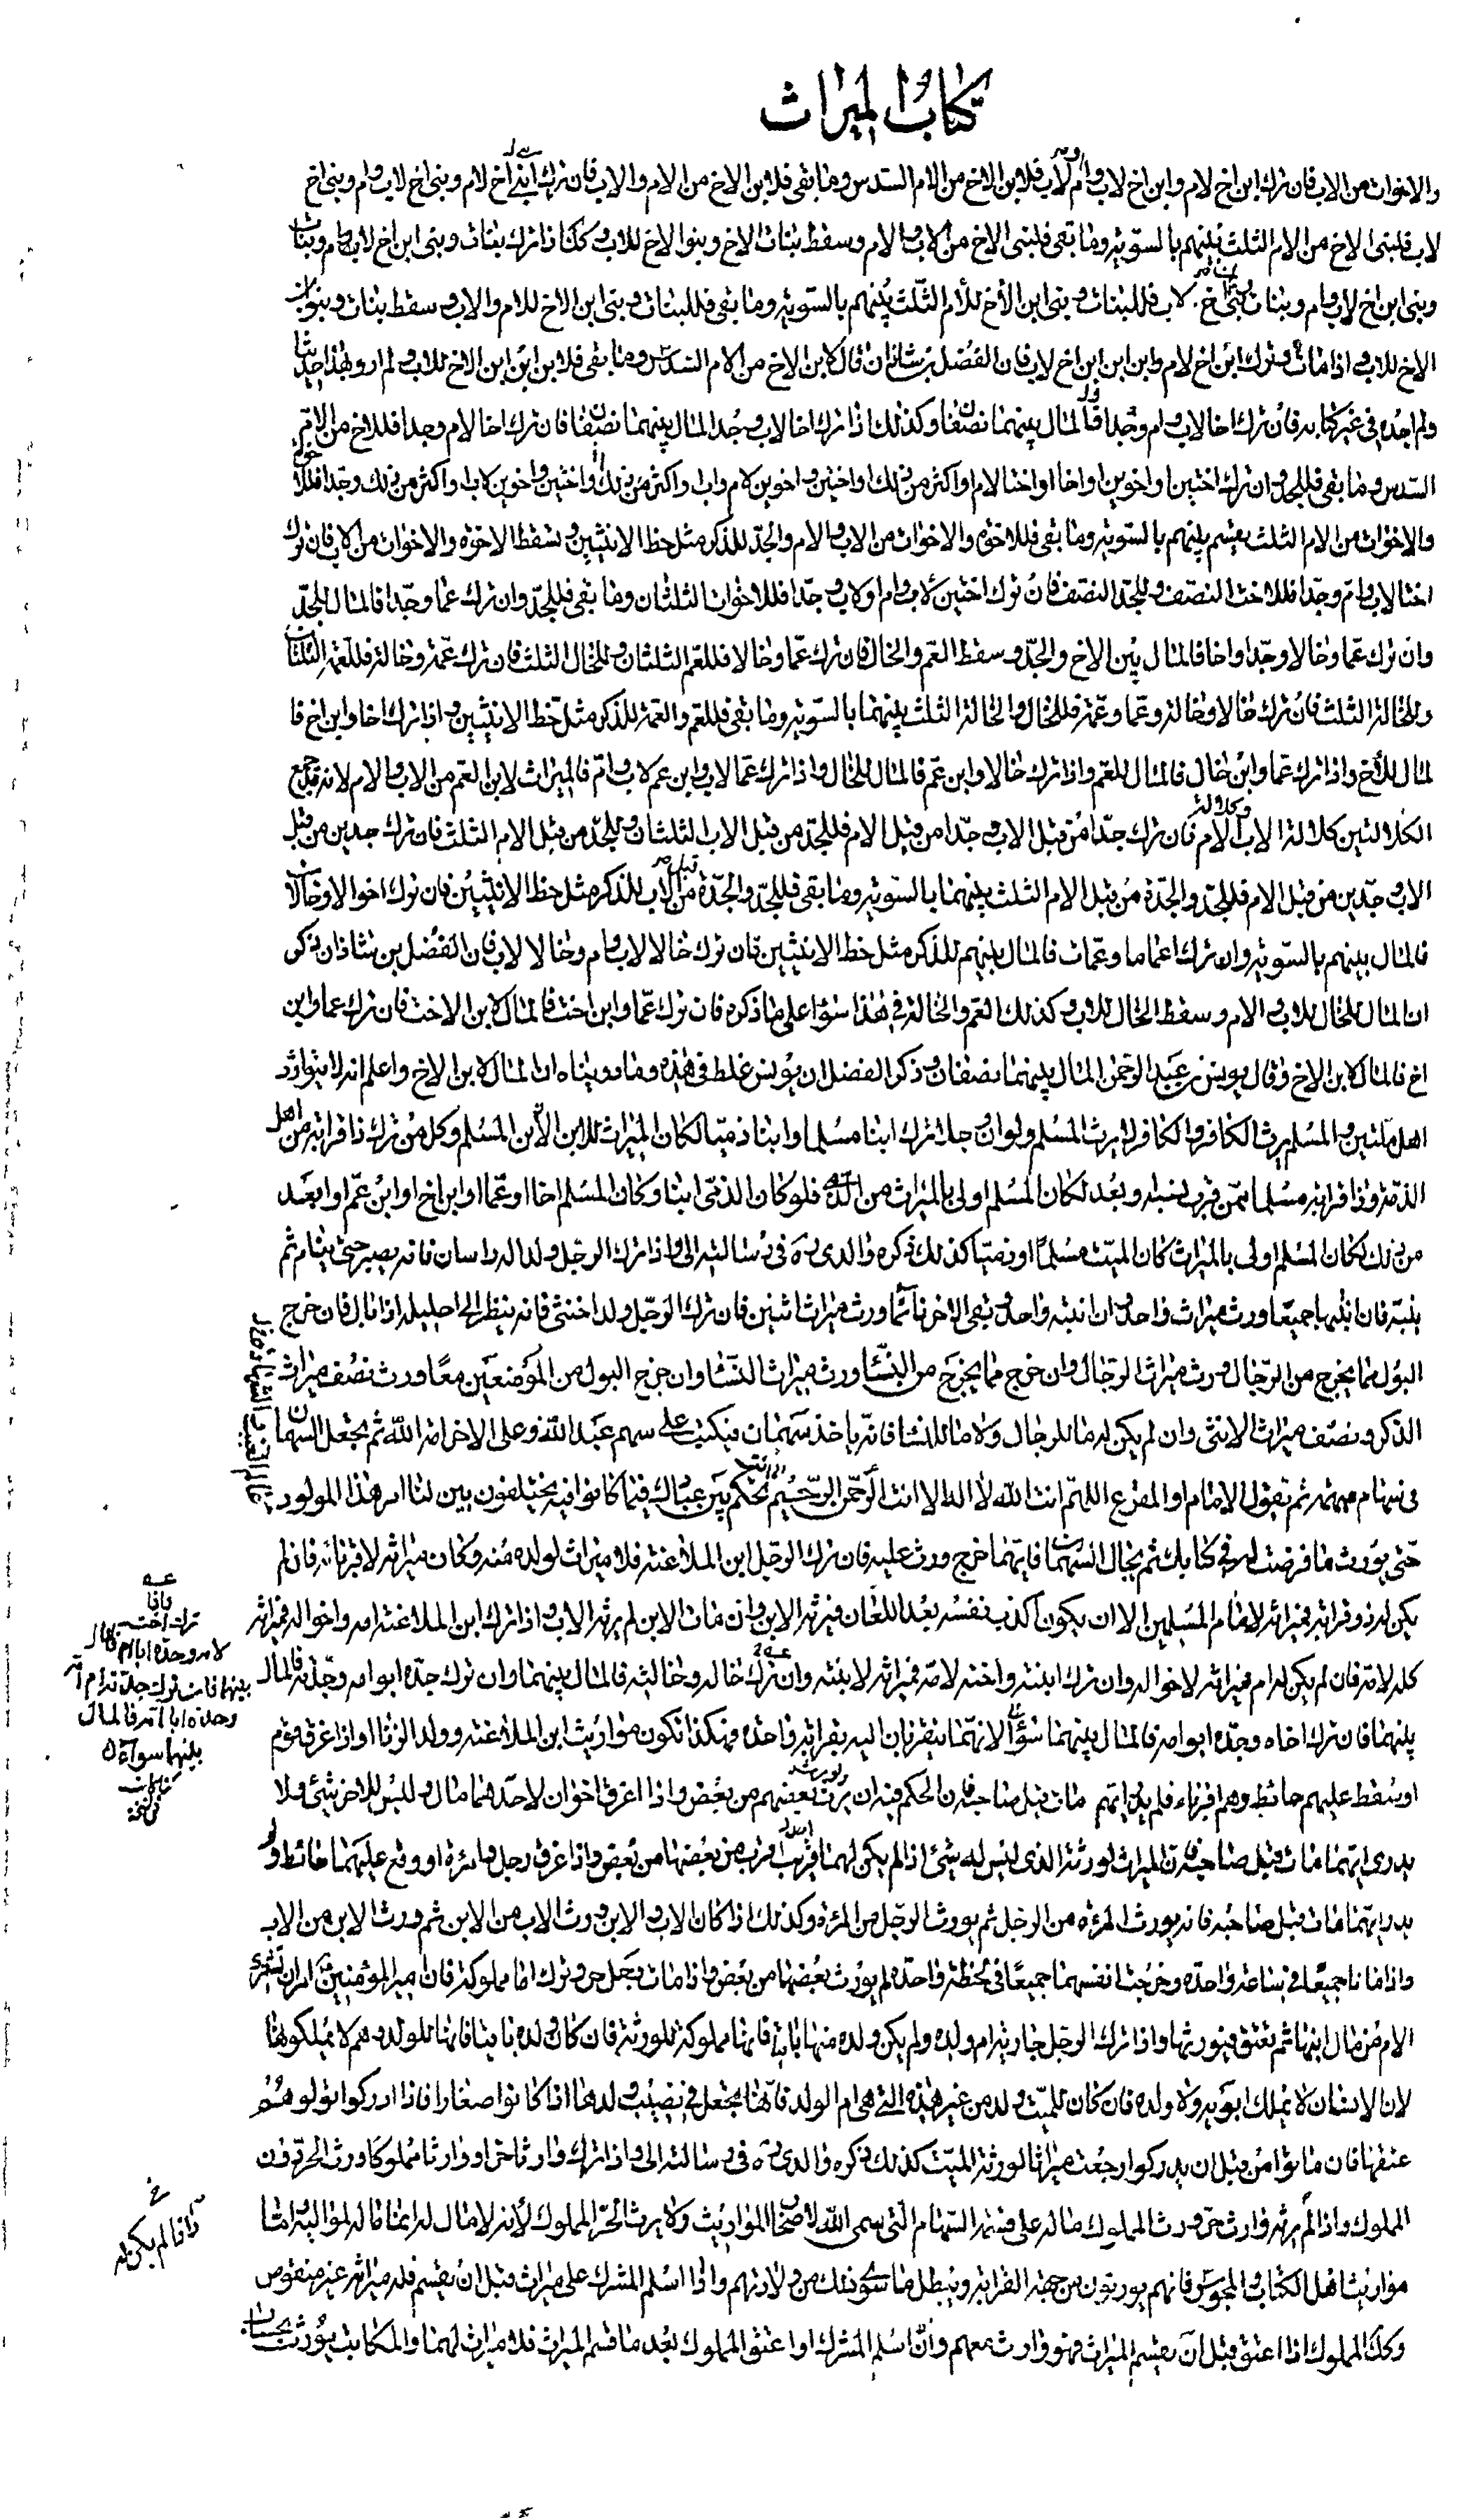 كتاب الميراث
والاخوات من الاب فان ترك ابن اخ لام وابن اخ لاب وام لاب فلابن الاخ من الام السدس وما بقى فلابن الاخ من الام والاب فان ترك ابنى اخ لام وبنى اخ لاب وام وبنى اخ
لاب فلبنى الاخ من الام الثلث بينهم بالسوية وما بقى فلبنى الاخ من الاب والام وسقط بنات الاخ وبنوا الاخ للاب وكك اذا ترك بنات وبنى ابن اخ لاب وام وبنات
وبنى ابن اخ لاب وام وبنات وبنى اخ لاب فللبنات وبنى ابن الاخ للام الثلث بينهم بالسوية وما بقى فللبنات وبنى ابن الاخ للام والاب وسقط بنات وبنو ابن
الاخ للاب واذا مات وترك ابن اخ لام وابن ابن ابن اخ لاب فان الفضل بن شاذان قال لابن الاخ من الام السدس وما بقى فلابن ابن ابن الاخ للاب ولم ارو بهذا حديثا
ولم اجده فى غير كتابه فان ترك اخا لاب وام وجدا فالمال بينهما نصفان وكذلك اذا ترك اخا لاب وجد المال بينهما نصفان فان ترك اخا لام وجدا فللاخ من الام
السدس وما بقى فللجد وان ترك اختين او اخوين او اخا او اختا لام او اكثر من ذلك او اختين واخوين لام واب واكثر من ذلك واختين واخوين لاب او اكثر من ذلك وجدا فللاخوة
والاخوات من الام الثلث يقسم بينهم بالسوية وما بقى فللاخوة والاخوات من الاب والام والجد للذكر مثل حظ الانثيين وتسقط الاخوة والاخوات من الاب فان ترك
اختا لاب وام وجدا فللاخت النصف وللجد النصف فان ترك اختين لاب وام او لاب وجدا فللاخوات الثلثان وما بقى فللجد وان ترك عما وجدا فالمال للجد
وان ترك عما وخالا وجدا واخا فالمال بين الاخ والجد وسقط العم والخال فان ترك عما وخالا فللعم الثلثان وللخال الثلث فان ترك عمة وخالة فللعمة الثلثان
وللخالة الثلث فان ترك خالا وخالة وعما وعمة فللخال والخالة الثلث بينهما بالسوية وما بقى فللعم والعمة للذكر مثل حظ الانثيين واذا ترك اخا وابن اخ فا
لمال للاخ واذا ترك عما وابن خال فالمال للعم واذا ترك خالا وابن عم فالمال للخال واذا ترك عما لاب وابن عم لاب وام فالميراث لابن العم من الاب والام لانه قد جمع
الكلالتين كلالة الاب وكلالة الام فان ترك جدا من قبل الاب وجدا من قبل الام فللجد من قبل الاب الثلثان وللجد من قبل الام الثلث فان ترك جدين من قبل
الاب وجدين من قبل الام فللجد والجدة من قبل الام الثلث بينهما بالسوية وما بقى فللجد والجدة من قبل الاب للذكر مثل حظ الانثيين فان ترك اخوالا وخالات
فالمال بينهم بالسوية وان ترك اعماما وعمات فالمال بينهم للذكر مثل حظ الانثيين فان ترك خالا لاب وام وخالا لاب فان الفضل بن شاذان ذكر
ان المال للخال للاب والام وسقط الخال للاب وكذلك العم والخالة فى هذا سواء على ما ذكره فان ترك عما وابن اخت فالمال لابن الاخت فان ترك عما وابن
اخ فالمال لابن الاخ وقال يونس بن عبد الرحمن المال بينهما نصفان وذكر الفضل ان يونس غلط فى هذه وما رويناه ان المال لابن الاخ واعلم انه لا يتوارث
اهل ملتين والمسلم يرث الكافر والكافر لا يرث المسلم ولو ان رجلا ترك ابنا مسلما وابنا ذميا لكان الميراث للابن المسلم وكل من ترك ذا قرابة من اهل
الذمة وذا قرابة مسلما ممن قرب نسبه وبعد لكان المسلم اولى بالميراث من الذمى فلو كان الذمى ابنا وكان المسلم اخا او عما او ابن اخ او ابن عم او ابعد
من ذلك لكان المسلم اولى بالميراث كان الميت مسلما او ذميا كذلك ذكره والدى ره فى رسالته الى واذا ترك الرجل ولدا له راسان فانه يصبر حتى ينام ثم
ينبه فان انتبها جميعا ورث ميراث واحد وان انتبه واحد وبقى الاخر نائما ورث ميراث اثنين فان ترك الرجل ولدا خنثى فانه ينظر الى احليله اذا بال فان خرج
البول مما يخرج من الرجال ورث ميراث الرجال وان خرج مما يخرج من النساء ورث ميراث النساء وان خرج البول من الموضعين معا ورث نصف ميراث
الذكر ونصف ميراث الانثى وان لم يكن له ما للرجال ولا ما للنساء فانه ياخذ سهمان فيكتب على سهم عبد الله وعلى الاخر امة الله ثم يجعل السهمان
فى سهام مبهمة ثم يقول الامام او المقرع اللهم انت الله لا اله الا انت الرحمن الرحيم انت تحكم بين عبادك فيما كانوا فيه يختلفون بين لنا امر هذا المولود
عالم الغيب والشهادة
حتى يورث ما فرضت له فى كتابك ثم يجال السهمان فايهما خرج ورث عليه فان ترك الرجل ابن الملاعنة فلا ميراث لولده منه وكان ميراثه لاقربائه فان لم
يكن له ذو قرابة فميراثه لامام المسلمين الا ان يكون اكذب نفسه بعد اللعان فيرثه الابن وان مات الابن لم يرثه الاب واذا ترك ابن الملاعنة امه واخواله فميراثه
كله لامه فان لم يكن له ام فميراثه لاخواله وان ترك ابنته واخته لامه فميراثه لابنته وان ترك خاله وخالته فالمال بينهما وان ترك جده ابو امه وجدته فالمال
بينهما فان ترك اخاه وجده ابو امه فالمال بينهما سواء لانهما يتقربان اليه بقرابة واحدة وهكذا تكون مواريث ابن الملاعنة وولد الزنا واذا غرق قوم
او سقط عليهم حائط وهم اقرباء فلم يدر ايهم مات قبل صاحبه فان الحكم فيه ان يرث بعضهم من بعض واذا غرق اخوان لاحدهما مال وليس للاخر شيئ ولا
يدرى ايهما مات قبل صاحبه فان الميراث لورثة الذى ليس له شيئ اذا لم يكن لهما قريب اقرب من بعضها من بعض واذا غرق رجل وامرة او وقع عليهما حائط ولم
يدر ايهما مات قبل صاحبه فانه يورث المرءة من الرجل ثم يورث الرجل من المرءة وكذلك اذا كان الاب والابن ورث الاب من الابن ثم ورث الابن من الاب
واذا ماتا جميعا فى ساعة واحدة وخرجت انفسهما جميعا فى لحظة واحدة لم يورث بعضها من بعض واذا مات رجل حر وترك اما مملوكة فان امير المؤمنين امر ان تشترى
الام من مال ابنها ثم تعتق فيورثها واذا ترك الرجل جارية ام ولده ولم يكن ولده منها باقيا فانها مملوكة للورثة فان كان ولده باقيا فانها للولد وهم لا يملكونها
لان الانسان لا يملك ابويه ولا ولده فان كان للميت ولد من غير هذه التى هى ام الولد فانها تجعل فى نصيب ولدها اذا كانوا صغارا فاذا ادركوا تولوا هم
عتقها فان ماتوا من قبل ان يدركوا رجعت ميراثا لورثة الميت كذلك ذكره والدى ره فى رسالته الى واذا ترك وارثا حرا ووارثا مملوكا ورث الحر دون
المملوك واذا لم يرثه وارث حر ورث المملوك ماله على قسمة السهام التى سمى الله لاصحاب المواريث ولا يرث الحر المملوك لانه لا مال له انما ماله لمواليه اما
مواريث اهل الكتاب والمجوس فانهم يورثون من جهة القرابة ويبطل ما سوى ذلك من ولادتهم واذا اسلم المشرك على ميراث قبل ان يقسم فله ميراثه غير منقوص
وكك المملوك اذا اعتق قبل ان يقسم الميراث فهو وارث معهم وان اسلم المشرك او اعتق المملوك بعد ما قسم الميراث فلا ميراث لهما والمكاتب يورث بحساب
فاذا
ترك اخته
لامه وجده ابا امه فالمال
بينهما فان ترك جدته ام امه
وجده ابا امه فالمال
بينهما سواء
كذا كان
فى نسخة
اذا لم يكن له